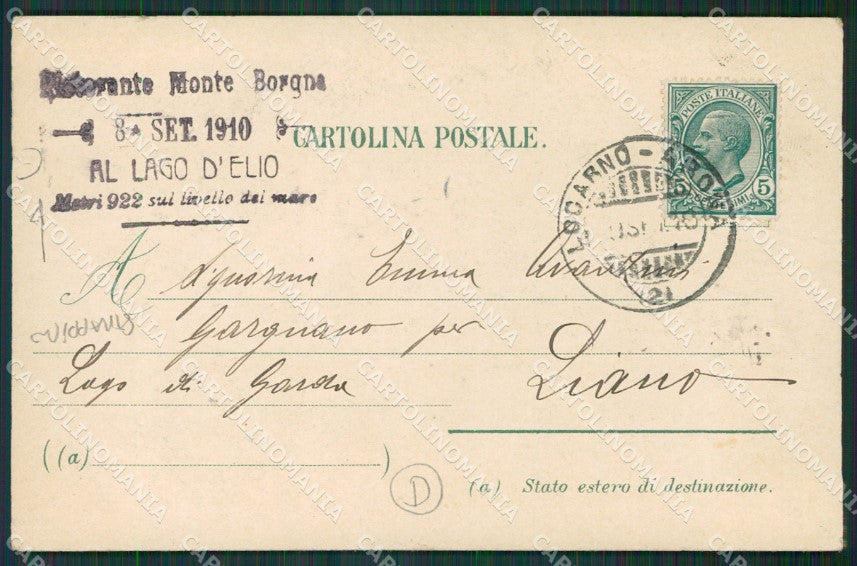 Ristorante Monte Borgna
8 SET. 1910
AL LAGO D'ELIO
Metri 922 sul livello del mare
CARTOLINA POSTALE.
POSTE ITALIANE
5 5
LOCARNO - ARONA
(2)
A Signorina Emma
Gargnano per
Lago di Garda Liano
((a) )
D
(a) Stato estero di destinazione.
CARTOLINOMANIA